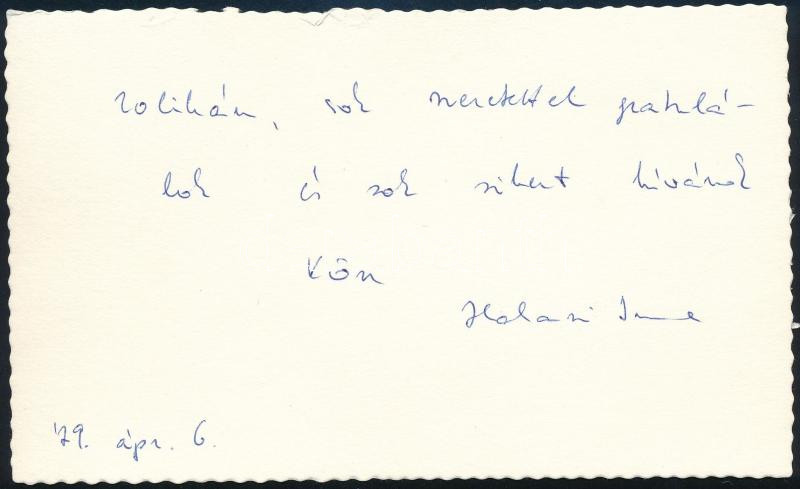 Zolikám, sok szeretettel gratulá-
lok és sok sikert kívánok
Kön
Halasi Imre
'79. ápr. 6.